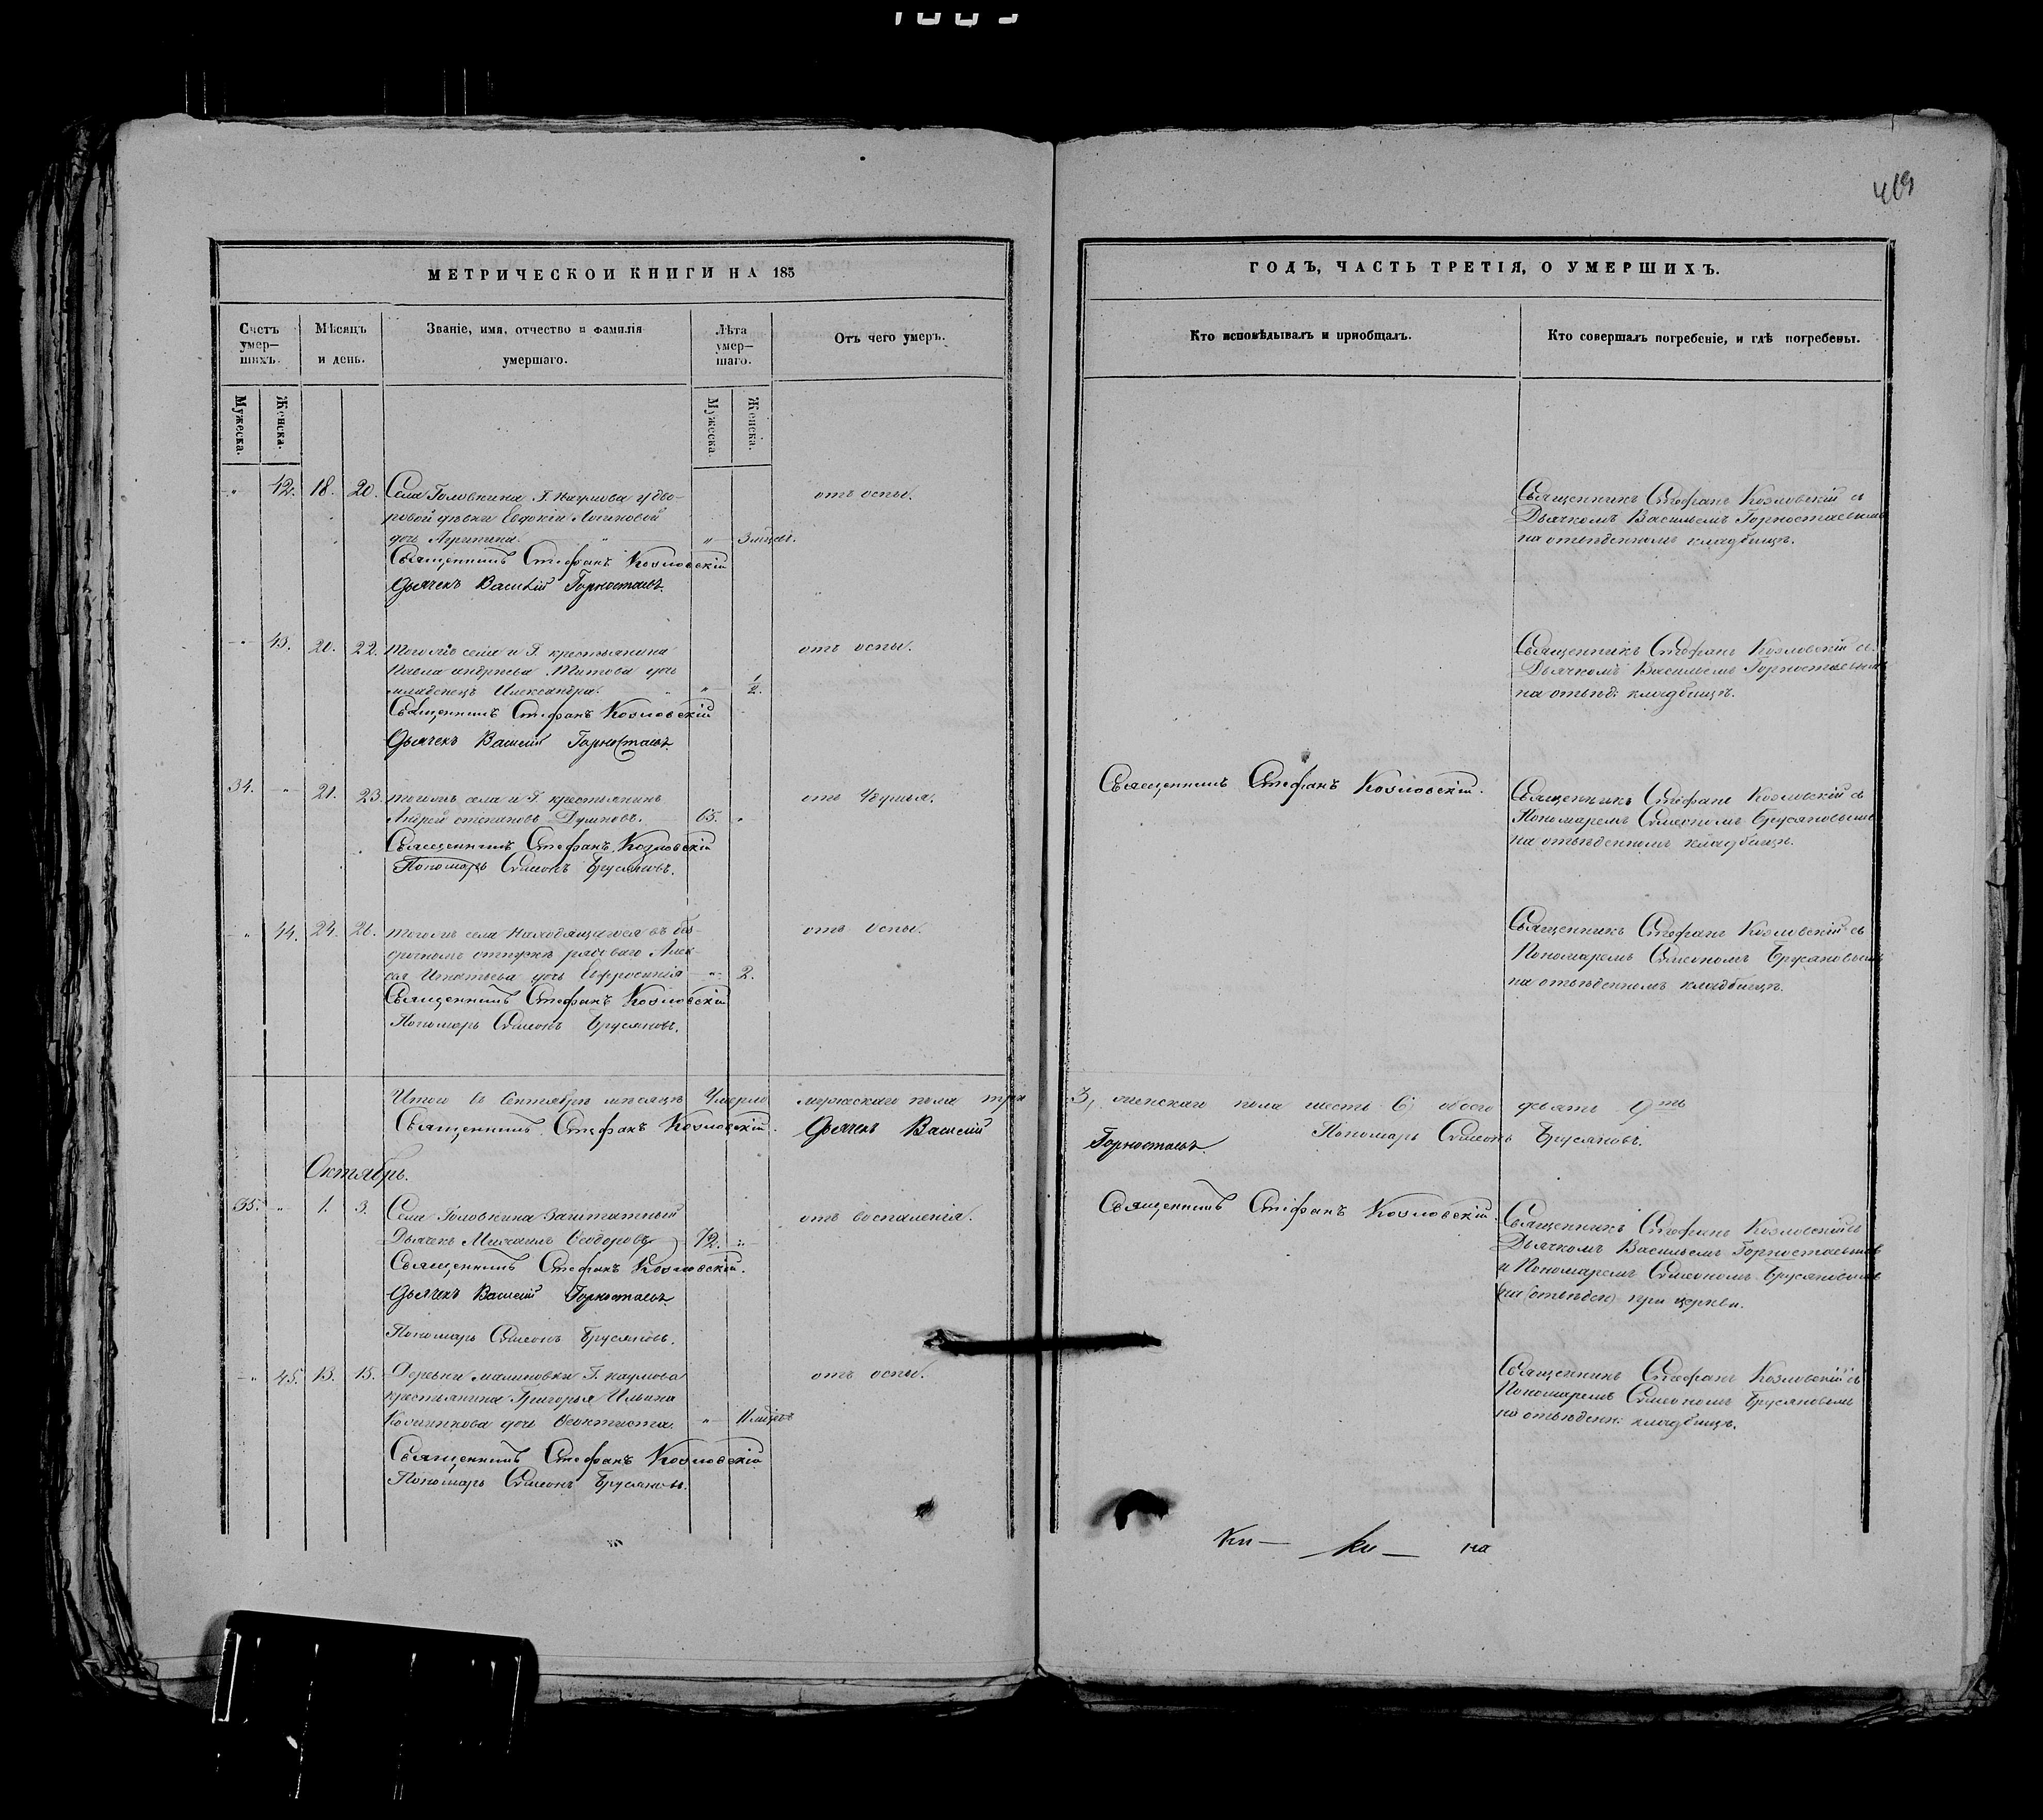 469
МЕТРИЧЕСКОЙ КНИГИ НА 185
ГОДЪ, ЧАСТЬ ТРЕТІЯ, О УМЕРШИХЪ.
Счетъ умер—шихъ.
Мѣсяцъ и день.
Званіе, имя, отчество и фамилія умершаго.
Лѣта умер—шаго.
Отъ чего умеръ.
Кто исповѣдывалъ и приобщалъ.
Кто совершалъ погребеніе, и гдѣ погребены.
Мужеска.
Женска.
Мужеска.
Женска.
42. 18. 20. Села Головкина Г. Наумова у дво-
ровой дѣвки Евдокіи Логиновой
дочь Агрипина. 3 мѣсяц.
отъ оспы.
Священникъ Стефанъ Козловскій
Дьячекъ Василій Горностаевъ.
Священникъ Стефанъ Козловскій съ
Дьячкомъ Васильемъ Горностаевымъ
на отведенномъ кладбищѣ.
43. 20. 22. тогожъ села и Г. крестьянина
Павла Андреева Титова дочь
младенецъ Александра. 1/2.
отъ оспы.
Священникъ Стефанъ Козловскій
Дьячекъ Василій Горностаевъ
Священникъ Стефанъ Козловскій съ
Дьячкомъ Васильемъ Горностаевымъ
на отвед: кладбищѣ.
34. 21. 23. тогожъ села и Г. крестьянинъ
Андрей степановъ 65.
отъ
Священникъ Стефанъ Козловскій
Пономарь Симеонъ Брусяновъ.
Священникъ Стефанъ Козловскій.
Священникъ Стефанъ Козловскій съ
Пономаремъ Симеономъ Брусяновымъ
на отведенномъ кладбищѣ.
44. 24. 26. тогожъ села находящагося въ без-
срочномъ отпускѣ рядоваго Алек-
сея Игнатьева дочь Ефросинія 2.
отъ оспы.
Священникъ Стефанъ Козловскій
Пономарь Симеонъ Брусяновъ.
Священникъ Стефанъ Козловскій съ
Пономаремъ Симеономъ Брусяновымъ
на отведенномъ кладбищѣ.
Итого въ Сентябрѣ мѣсяцѣ Умерло мужескаго пола три 3, женскаго пола шесть 6, обоего девять 9ть
Священникъ Стефанъ Козловскій. Дьячекъ Василій Горностаевъ. Пономарь Симеонъ Брусяновъ.
Октябрь.
35. 1. 3. Села Головкина Заштатный
Дьячекъ Михаилъ Ѳеодоровъ 72.
отъ воспаленія.
Священникъ Стефанъ Козловскій.
Дьячекъ Василій Горностаевъ
Пономарь Симеонъ Брусяновъ.
Священникъ Стефанъ Козловскій.
Священникъ Стефанъ Козловскій съ
Дьячкомъ Васильемъ Горностаевымъ
и Пономаремъ Симеономъ Брусяновымъ
на (отведен) при церкви.
45. 13. 15. Деревни малиновки Г. наумова
крестьянина Григорья Ильина
дочь Ѳеоктиста. 11 мѣсяц
отъ оспы.
Священникъ Стефанъ Козловскій
Пономарь Симеонъ Брусяновъ.
Священникъ Стефанъ Козловскій съ
Пономаремъ Симеономъ Брусяновымъ
на отведенн: кладбищѣ.
на